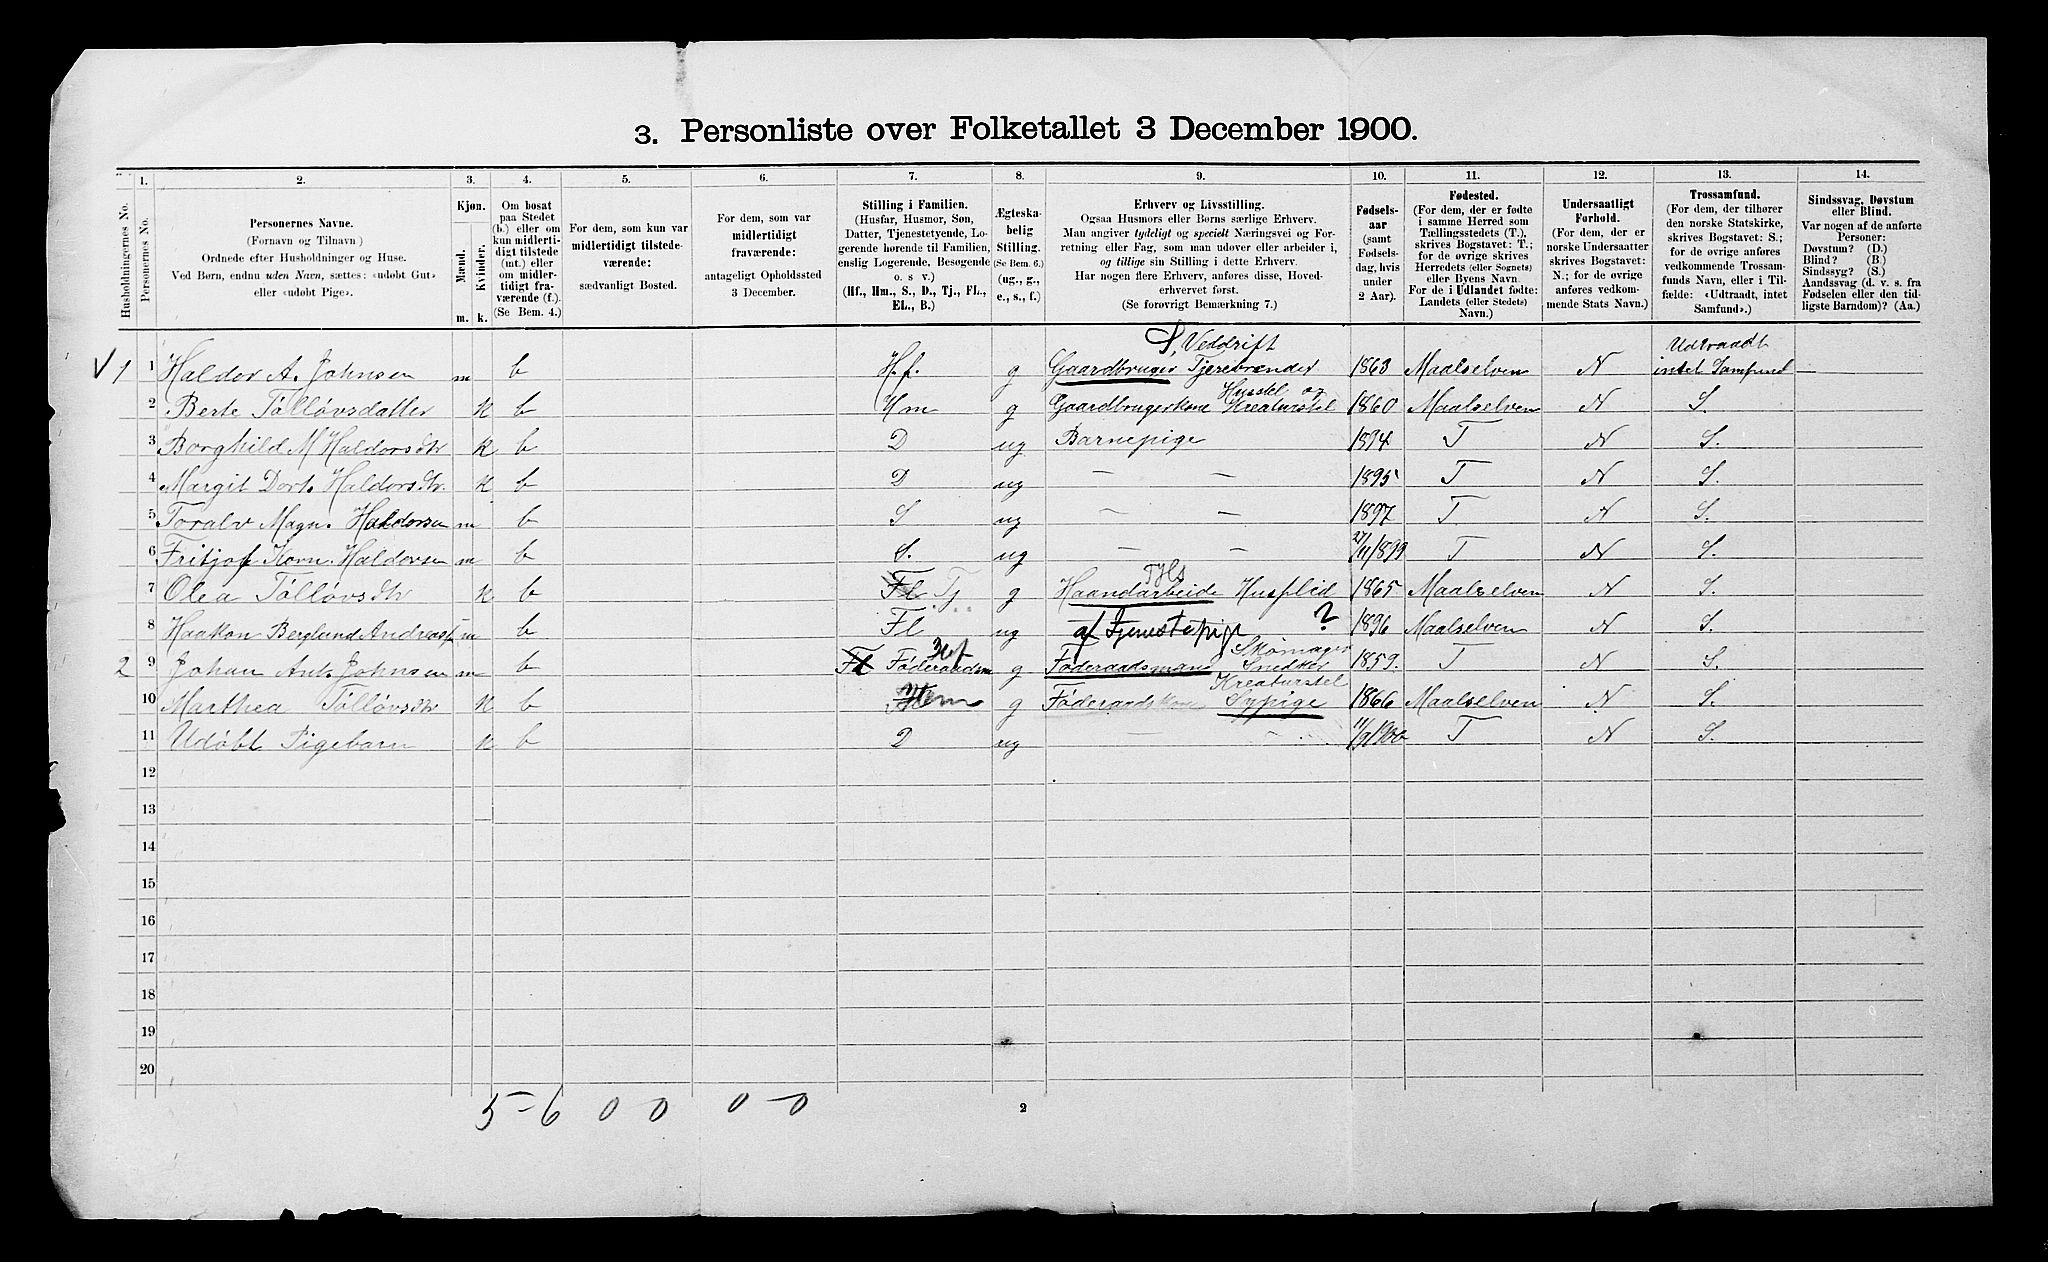 3. Personliste over Folketallet 3 December 1900.
1. 2. 3. 4. 5. 6. 7. 8. 9. 10. 11. 12. 13. 14.
Husholdningernes No.
Personernes No.
Personernes Navne.
(Fornavn og Tilnavn)
Ordnede efter Husholdninger og Huse.
Ved Børn, endnu uden Navn, sættes: «udøbt Gut»
eller «udøbt Pige».
Kjøn.
Mænd.
Kvinder.
m. k.
Om bosat
paa Stedet
(b.) eller om
kun midlerti-
digt tilstede
(mt.) eller
om midler-
tidigt fra-
værende (f.).
(Se Bem. 4.)
For dem, som kun var
midlertidigt tilstede-
værende:
sædvanligt Bosted.
For dem, som var
midlertidigt
fraværende:
antageligt Opholdssted
3 December.
Stilling i Familien.
(Husfar, Husmor, Søn,
Datter, Tjenestetyende, Lo-
gerende hørende til Familien,
enslig Logerende, Besøgende
o. s v.)
(Hf., Hm., S., D., Tj., FL.,
EL., B.)
Ægteska-
belig
Stilling.
(Se Bem. 6.)
(ug., g.,
e., s., f.)
Erhverv og Livsstilling.
Ogsaa Husmors eller Børns særlige Erhverv.
Man angiver tydeligt og specielt Næringsvei og For-
retning eller Fag, som man udøver eller arbeider i,
og tillige sin Stilling i dette Erhverv.
Har nogen flere Erhverv, anføres disse, Hoved-
erhvervet først.
(Se forøvrigt Bemærkning 7.)
Fødsels-
aar
(samt
Fødsels-
dag, hvis
under
2 Aar).
Fødested.
(For dem, der er fødte
i samme Herred som
Tællingsstedets (T.),
skrives Bogstavet: T.;
for de øvrige skrives
Herredets (eller Sognets)
eller Byens Navn.
For de i Udlandet fødte:
Landets (eller Stedets)
Navn.)
Undersaatligt
Forhold.
(For dem, der er
norske Undersaatter
skrives Bogstavet:
N.; for de øvrige
anføres vedkom-
mende Stats Navn.)
Trossamfund.
(For dem, der tilhører
den norske Statskirke,
skrives Bogstavet: S.;
for de øvrige anføres
vedkommende Trossam-
funds Navn, eller i Til-
fælde: «Udtraadt, intet
Samfund».)
Sindssvag, Døvstum
eller Blind.
Var nogen af de anførte
Personer:
Døvstum? (D.)
Blind? (B.)
Sindssyg? (S.)
Aandssvag (d. v. s. fra
Fødselen eller den tid-
ligste Barndom)? (Aa.)
S, Veddrift Udtraadt
V 1 1 Haldor A. Johnsen m b H.f. g Gaardbruger Tjærebrænder 1863 Maalselven N intet Samfund —
Husstel og
2 Berte Tølløvsdatter K b Hm g Gaardbrugerkone Kreaturstel 1860 Maalselven N S.
3 Borghild M Haldorsdtr K b D ug Barnepige 1894 T N S.
4 Margit Dort. Haldorsdtr. K b D ug — — 1895 T N S.
5 Toralv Magn. Haldorsen m b S ug — — 1897 T N S.
6 Fritjof Korn. Haldorsen m b S. ug — — 27/11 1899 T N S.
Tjhs
7 Olea Tølløvsdtr K b Fl Tj g Haandarbeide Husflid 1865 Maalselven N S.
8 Haakon Berglund Andreas m b Fl ug af Tjenestepige ? 1896 Maalselven N S.
Hf Skomager
2 9 Johan Ant. Johnsen m b Fl Føderaadsm g Føderaadsmand Snedker 1859. T N S.
Kreaturstel
10 Marthea Tølløvsdtr K b Hm g Føderaadskone Sypige 1866 Maalselven N S.
11 Udøbt Pigebarn K b D ug — — 11/9 1900 T N S.
12
13
14
15
16
17
18
19
20
5 – 6 0 0 0 – 0
2